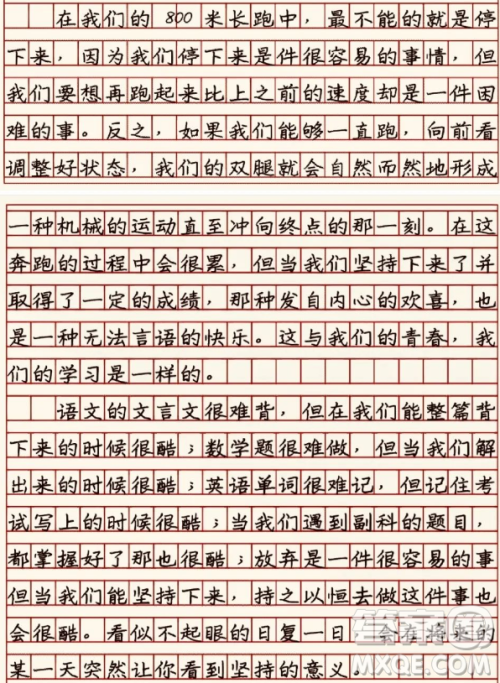 在我们的800米长跑中，最不能的就是停
下来，因为我们停下来是件很容易的事情，但
我们要想再跑起来比上之前的速度却是一件困
难的事。反之，如果我们能够一直跑，向前看
调整好状态，我们的双腿就会自然而然地形成
一种机械的运动直至冲向终点的那一刻。在这
奔跑的过程中会很累，但当我们坚持下来了并
取得了一定的成绩，那种发自内心的欢喜，也
是一种无法言语的快乐。这与我们的青春，我
们的学习是一样的。
语文的文言文很难背，但在我们能整篇背
下来的时候很酷；数学题很难做，但当我们解
出来的时候很酷；英语单词很难记，但记住考
试写上的时候很酷；当我们遇到副科的题目，
都掌握好了那也很酷；放弃是一件很容易的事
但当我们能坚持下来，持之以恒去做这件事也
会很酷。看似不起眼的日复一日，会在将来的
某一天突然让你看到坚持的意义。
答案圈
MXQE.COM